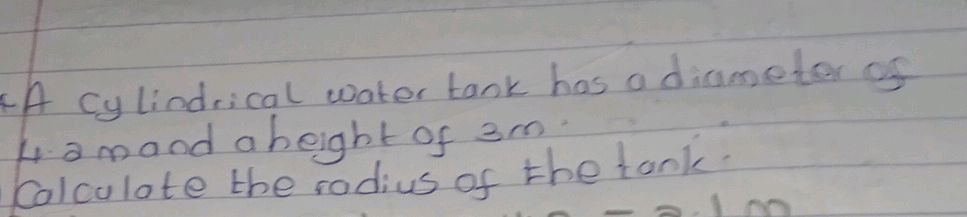 A cylindrical water tank has a diameter of
4.2m and a height of 3m.
Calculate the radius of the tank.
= 2.1m